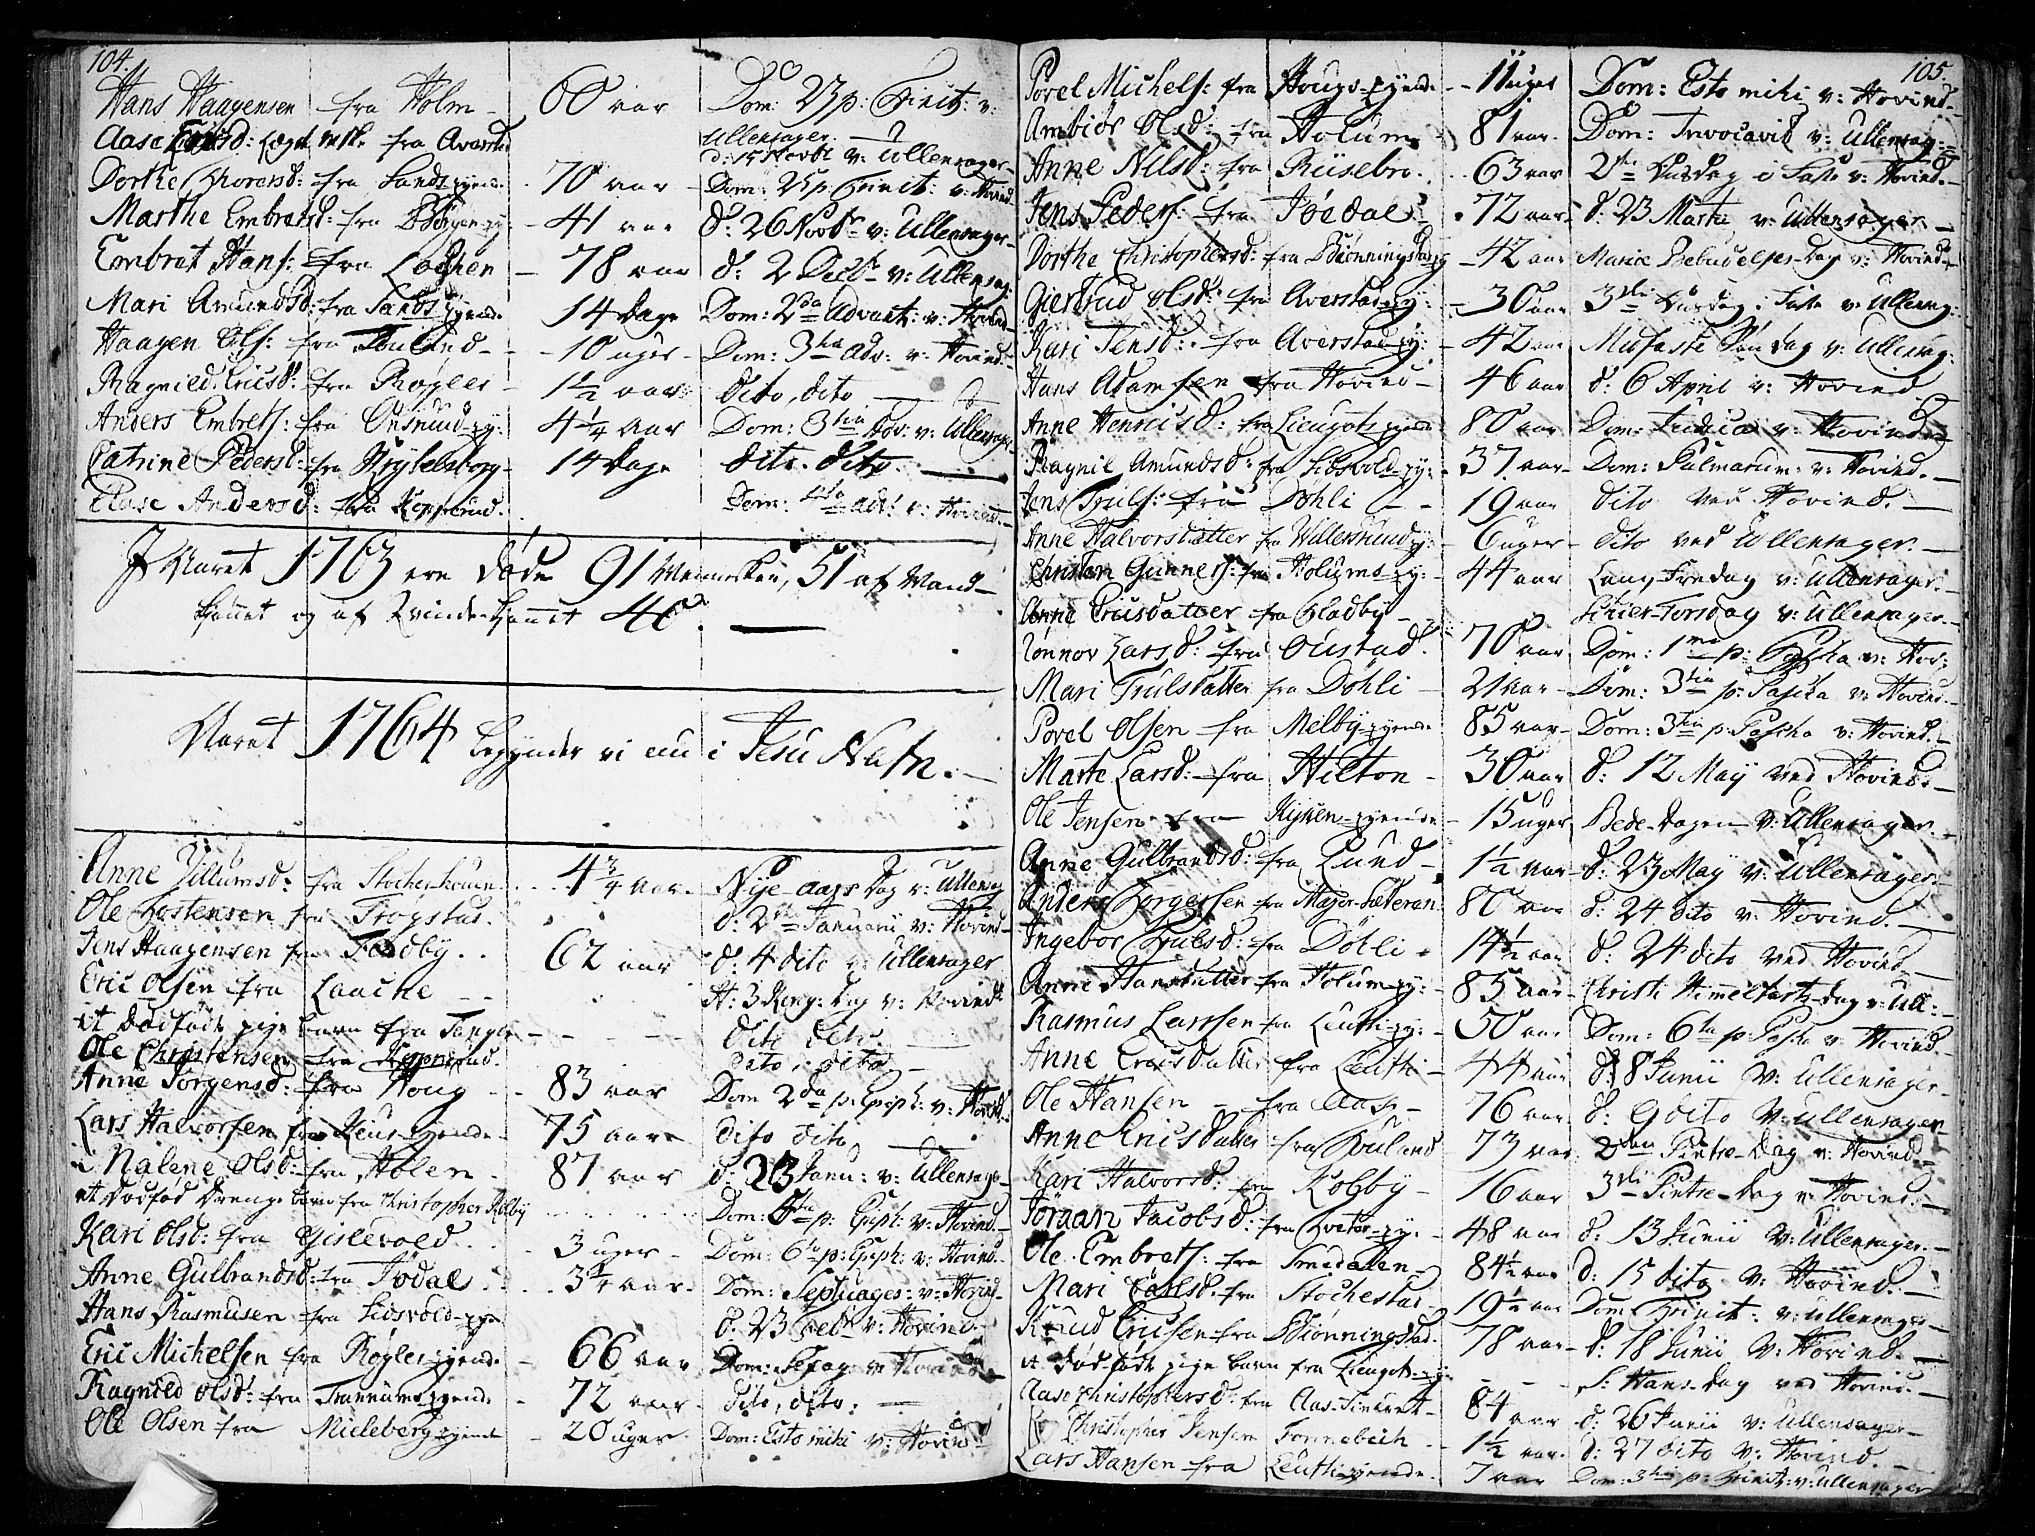 104.
Hans Haagensen fra Holm 60 aar Dom: 23 p: Trinit: v: Ullensager.
Aase fra d: 15 Novbr v: Ullensager
Dorthe Thoresd: fra Sands 70 aar Dom: 25 p Trinit: v: Hovind
Marthe Embretsd: fra 41 aar d: 26 Novbr v: Ullensager
Embret Hans: fra Lochen 78 aar d: 2 Decbr v: Ullensag:
Mari Amundsd: fra Sands 14 dage Dom: 2da Advent: v: Hovind
Haagen Ols: fra 10 uger Dom: 3tia adv: v: Hovind
Ragnild Ericsd: fra Røgler 1½ aar dito, dito
Anders Embrets: fra Onsrud 4¼ aar Dom: 3tia Adv: v: Ullensager
Catrine Pedersd: fra 14 dage dito. dito.
Andersd: fra Kopperud. Dom: 4ta adv: v: Hovind.
I Aaret 1763 ere døde 91 Mennesker, 51 af Mand-
kønnet og af Qvinde-kønnet 40.
Aaret 1764 begynder vi nu i Jesu Nafn.
Anne Villumsd: fra 4¾ aar Nye-aars Dag v: Ullensag
Ole Torstensen fra Trøgstad. d: 2 Januarii v: Hovind
Jens Haagensen fra 62 aar d: 4 dito v: Ullensager
Eric Olsen fra Laache H: 3 Kong: Dag v: Hovind
et dødfødt pige barn fra dito dito.
Ole Christensen fra Kopperud. dito, dito
Anne Jørgensd: fra Houg 83 aar Dom 2da p: Epiph: v: Hovind
Lars Halvorsen fra 75 aar dito dito,
Malene Olsd: fra Holen 87 aar d: 23 Janu: v: Ullensager
et dødfød drenge barn fra Christopher Dom: p: Epiph: v: Hovind
Kari Olsd: fra Gislevold 3 uger Dom: 6ta p: Epiph: v: Hovind.
Anne Gulbrandsd: fra Jødal 3¼ aar Dom: Septuages: v: Hovind
Hans Rasmusen fra Eidsvold d: 23 Febr v: Hovind.
Eric Michelsen fra Røgler 66 aar Dom: Sexag: v: Hovind
Ragnild Olsd: fra 72 aar dito, dito:
Ole Olsen fra Mieleberg 20 uger Dom: Esto mihi v: Hovind
105.
Povel Michels: fra Hougs 11 uger Dom: Esto mihi v: Hovind
Ambiør Olsd: fra Holum 81 aar. Dom: Invocavit v: Ullensag:
Anne Nilsd: fra Riisebro. 63 aar 2den i Faste v: Hovind.
Jens Peders: fra Jødal 72 aar d: 23 Martii v: Ullensager
Dorthe Christophersd: fra Biønningstad 42 aar Mariæ Bebudelses-Dag v: Hovind
Giertrud Olsd: fra Averstad 30 aar 3die i Faste v: Ullensag:
Kari Jensd: fra Averstad 42 aar Midfaste Søndag v: Ullensag:
Hans Adamsen fra Hovind 46 aar d: 6 April v: Hovind
Anne Henricsd: fra Liengots 80 aar Dom: Judica v: Hovind
Ragnil Amundsd: fra Eidsvold 37 aar Dom: Palmarum: v: Hovind.
Jens Truls: fra Døhli 19 aar dito ved Hovind.
Anne Halvorsdatter fra 6 uger dito ved Ullensager.
Christen Gunners: fra Holums 44 aar Lang Fredag v: Ullensager.
Anne Ericsdatter fra Gladby Skier-Torsdag v: Ullensager.
Rønnov Larsd: fra Oustad. 70 aar Dom: 1ma p: Pascha v: Hov:
Mari Trulsdatter fra Døhli 21 aar Dom: 3tia p: Pascha v: Hovind.
Povel Olsen fra Melby 85 aar Dom: 3tia p: Pascha v: Hovind.
Marte Larsd: fra Hilton 30 aar d: 12 Maij ved Hovind.
Ole Jensen fra 15 uger Bede-Dagen v: Ullensager.
Anne Gulbrandsd: fra Lund 1½ aar d: 23 Maij v: Ullensager.
Anders fra Major 80 aar d: 24 dito v: Hovind.
Ingebor Trulsd: fra Døhli 14½ aar d: 24 dito ved Hovind
Anne Hansdatter fra Holum 85 aar Christi Himmelfarts-Dag v: Ull:
Rasmus Larssen fra Leutti 50 aar Dom: 6ta p: Pascha v: Hovind.
Anne Ericsdatter fra Leutti 44 aar d: 8 Junii v: Ullensager.
Ole Hansen fra Aas 76 aar d: 9 dito v: Ullensager
Anne Ericsdatter fra 73 aar 2den Pintse-Dag v: Hovind
Kari Halvorsd: fra Kolby 16 aar 3die Pintse-Dag v: Hovind.
Jørgan Jacobsd: fra 48 aar d: 13 Junii v: Ullensager.
Ole Embrets: fra Smedalen 84½ aar d: 15 dito v: Hovind.
Mari fra Stochestad 19½ aar Dom Trinit: v: Ullensager
Knud Ericsen fra Biønningstad. 78 aar d: 18 Junii v: Hovind.
et dødfødt pige barn fra Liengots S: Hans-Dag ved Hovind.
Aase Christophersd: fra Aas 84 aar d: 26 Junii v: Ullensager
Christopher Jensen 1½ aar. d: 27 dito v: Hovind.
Lars Hansen fra Leutti 7 aar Dom: 3tia p: Trinit: v: Ullensager